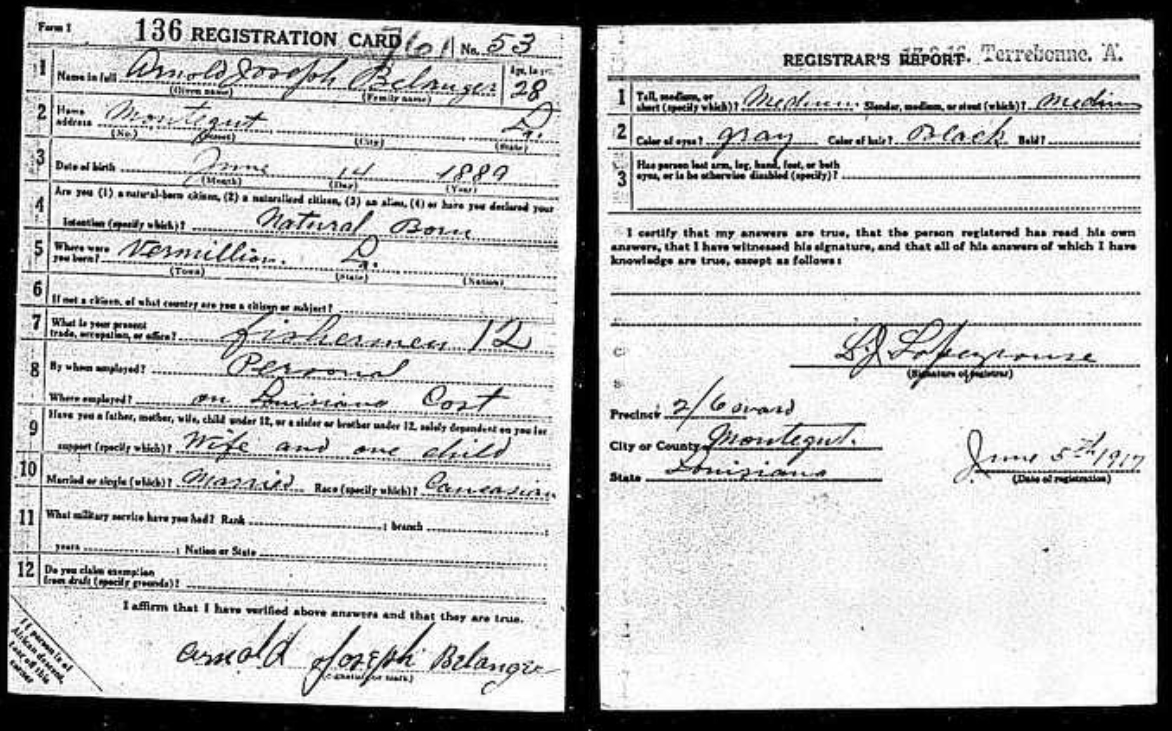 Form 1
136 REGISTRATION CARD No. 53
1 Name in full Arnold Joseph Belanger Age, in yrs. 28
(Given name) (Family name)
2 Home address Montegut La.
(No.) (Street) (City) (State)
3 Date of birth June 14 1889
(Month) (Day) (Year)
4 Are you (1) a natural-born citizen, (2) a naturalized citizen, (3) an alien, (4) or have you declared your
intention (specify which)? Natural Born
5 Where were you born? Vermillion. La.
(Town) (State) (Nation)
6 If not a citizen, of what country are you a citizen or subject?
7 What is your present trade, occupation, or office? fishermen 12
8 By whom employed? Personal
Where employed? on Louisiana Cost
9 Have you a father, mother, wife, child under 12, or a sister or brother under 12, solely dependent on you for
support (specify which)? Wife and one child
10 Married or single (which)? Married Race (specify which)? Caucasian
11 What military service have you had? Rank ; branch ;
years ; Nation or State
12 Do you claim exemption from draft (specify grounds)?
I affirm that I have verified above answers and that they are true.
Arnold Joseph Belanger
(Signature or mark)
If person is of
African descent,
tear off this
corner
REGISTRAR'S REPORT. Terrebonne. A.
1 Tall, medium, or short (specify which)? Medium. Slender, medium, or stout (which)? medium
2 Color of eyes? gray Color of hair? Black Bald?
3 Has person lost arm, leg, hand, foot, or both
eyes, or is he otherwise disabled (specify)?
I certify that my answers are true, that the person registered has read his own
answers, that I have witnessed his signature, and that all of his answers of which I have
knowledge are true, except as follows:
(Signature of registrar)
Precinct 2/6 ward
City or County Montegut.
State Louisiana
June 5th 1917
(Date of registration)